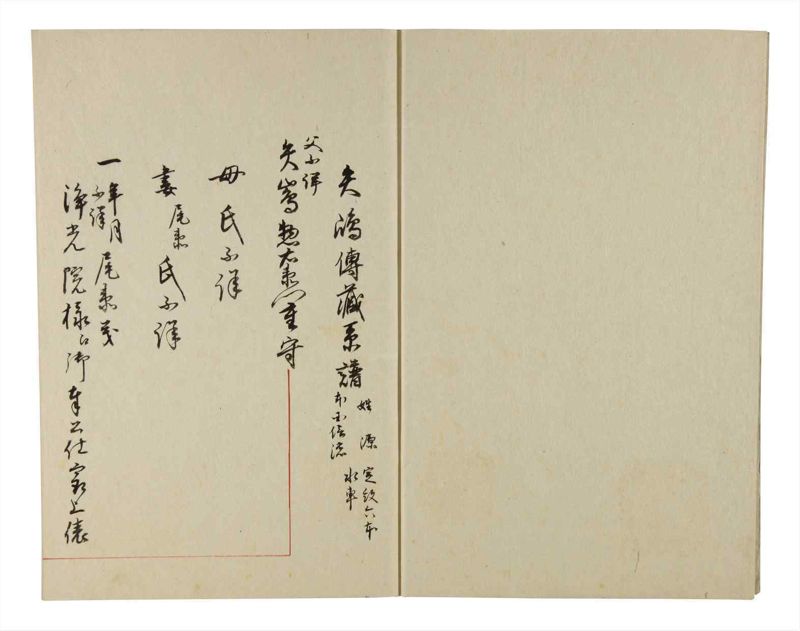 矢嶋傳蔵系譜
姓 源 定紋六本
水車
本国信濃
父不詳
矢嶌惣右衛門重守
母 氏不詳
妻 尾州 氏不詳
一 年月 尾州
不詳
浄光院様江御奉公仕